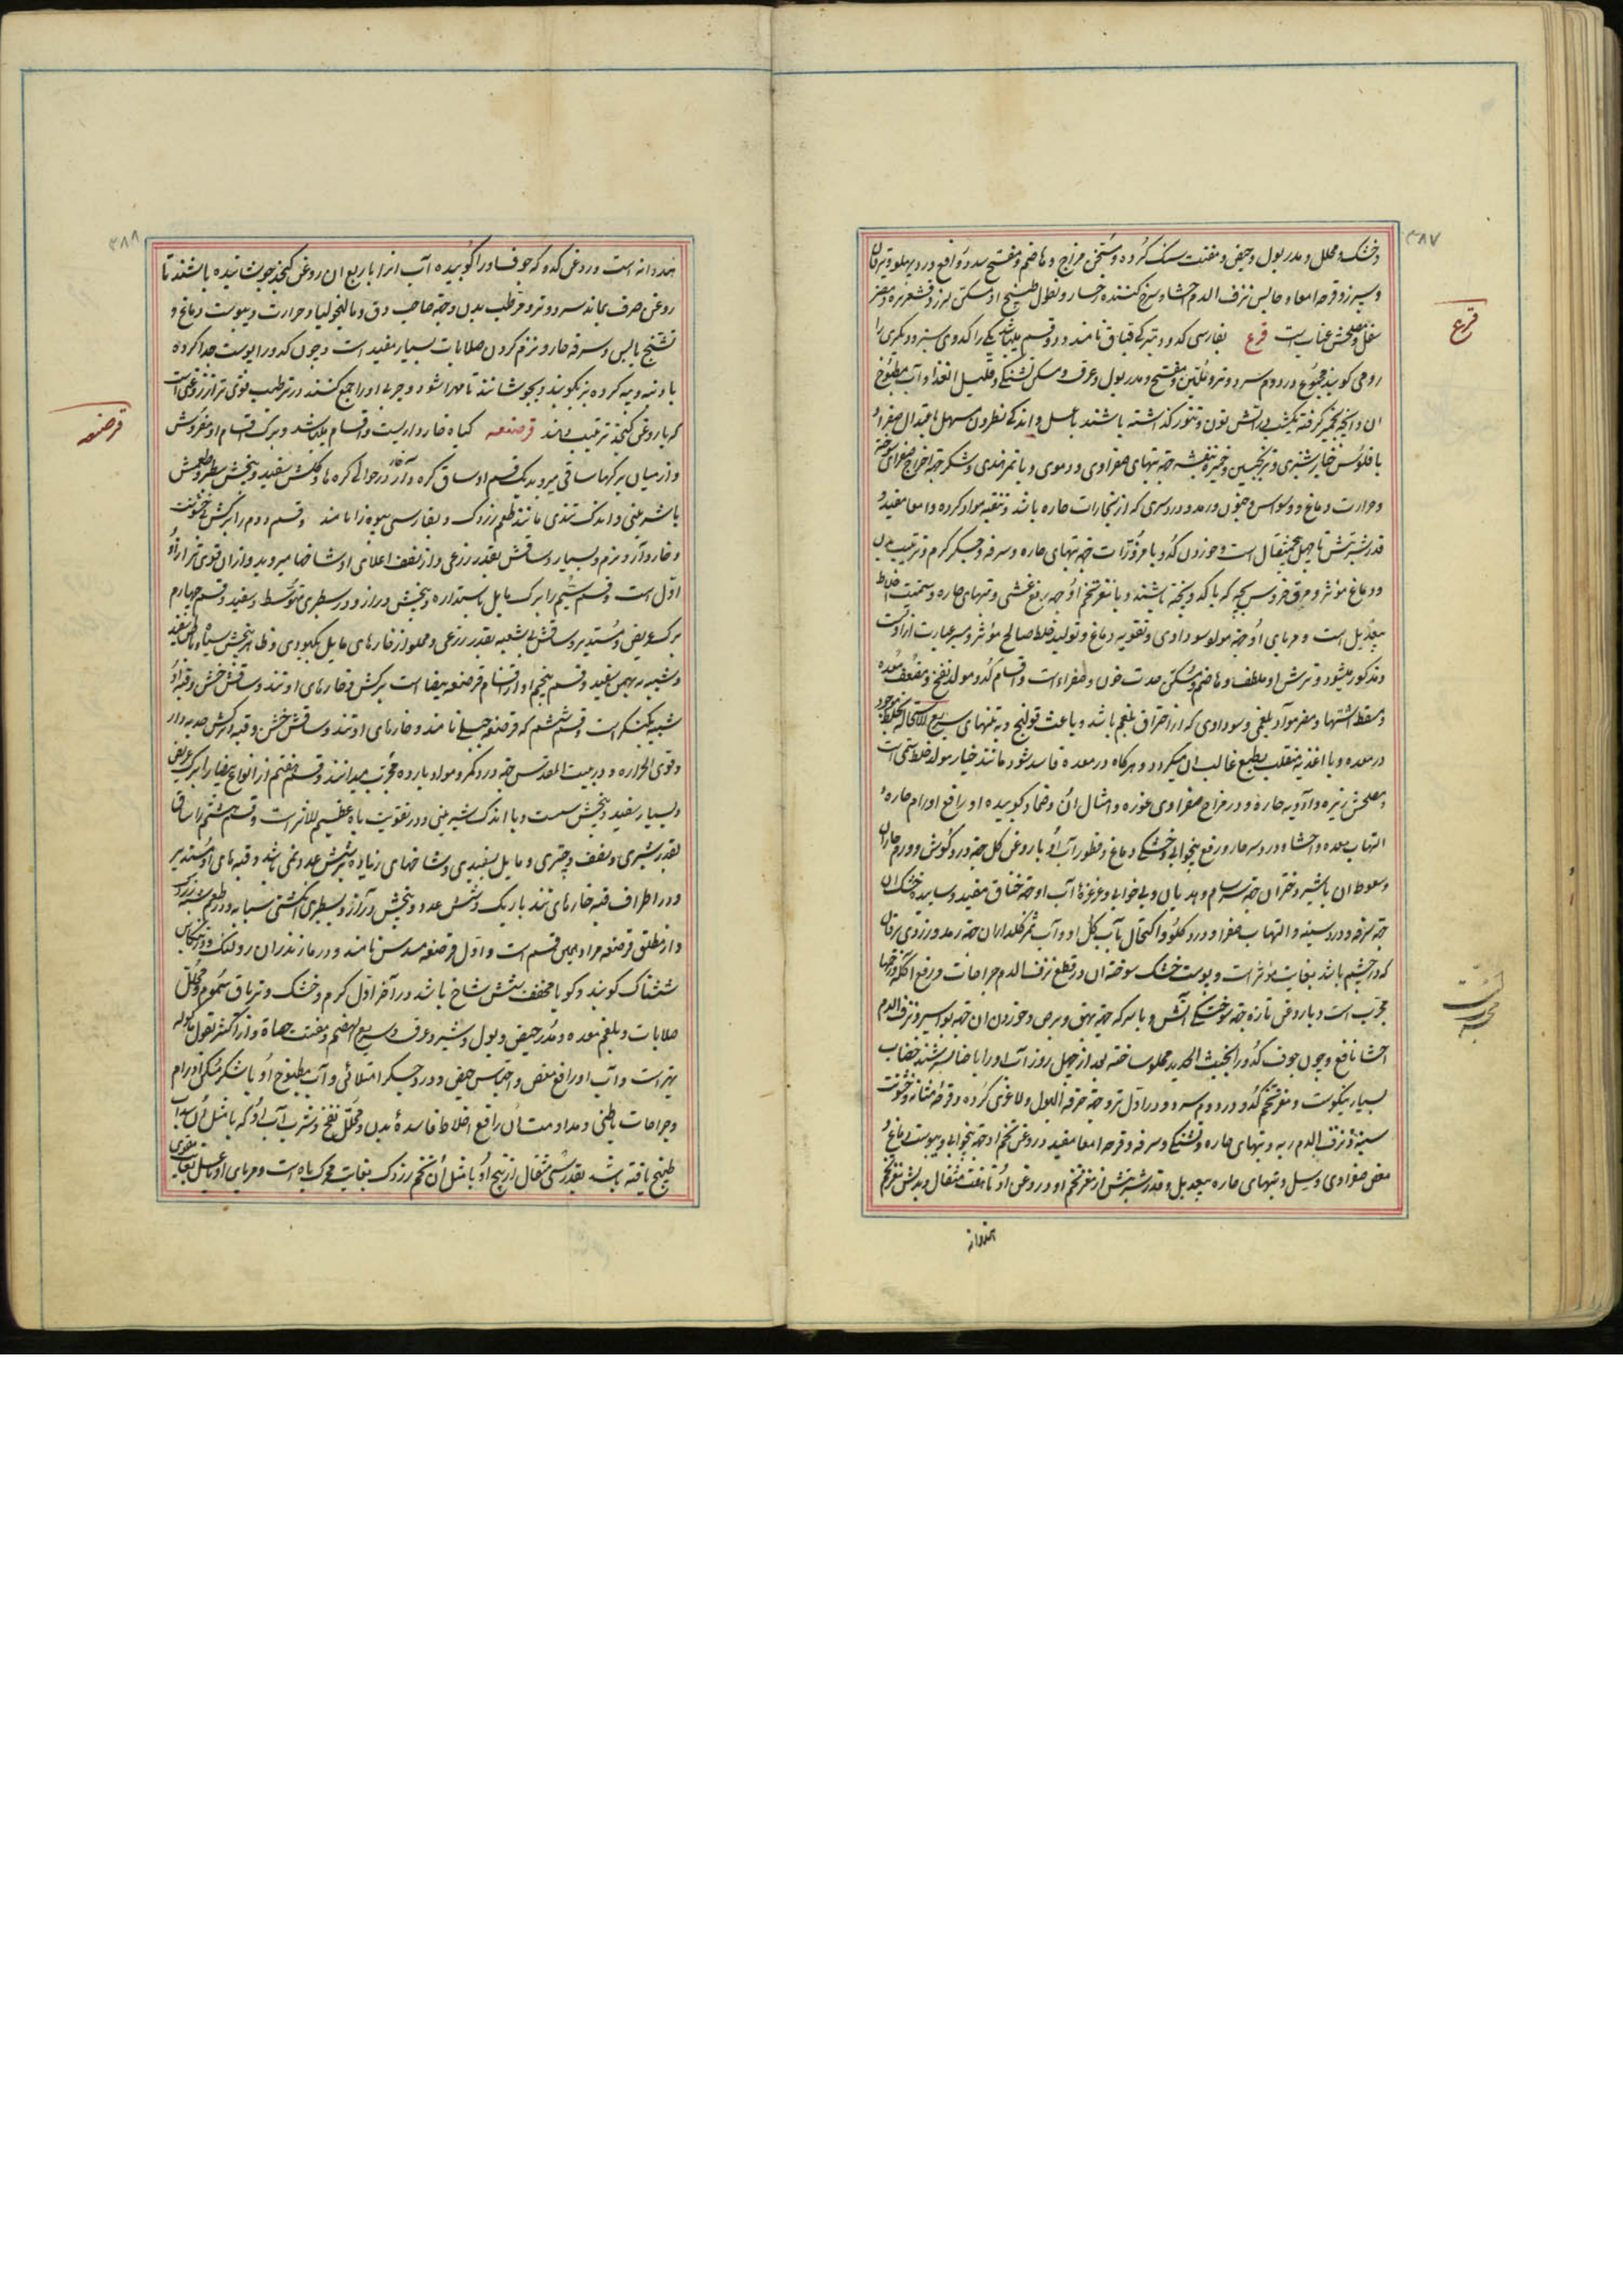 ۳۸۷
و خشک و محلل و مدر بول و حیض و مفتت سنک کرده و مسخن مزاج و هاضم و مفتح سدد و رافع درد پهلو و یرقان
و سپرز و قرحه امعا و حابس نزف الدم احشا و سرخ کننده رخسار و نطول طبیخ او مسکن لرز و قشعریره و مضر
سفل و مصلحش عناب است قرع بفارسی کدو و بترکی قباق نامند و دو قسم میباشد یکی را کدوی سبز و دیگری را
قرع
رومی کویند مجموع در دوم سرد و تر و ملین و مفتح و مدر بول و عرق و مسکن تشنکی و قلیل الغذا و آب مطبوخ
ان و انچه بخمیر کرفته یکشب در آتش تون و تنور کذاشته باشند با عسل و اندکی نطرون مسهل باعتدال صفرا و
با فلوس خیار شنبر و ترنجبین و خمیره بنفشه جهة تبهای صفراوی و دموی و با تمر هندی و شکر جهة اخراج صفرای سوخته
و حرارت دماغ و وسواس و جنون و رمد و درد سری که از بخارات حاره باشد و تنقیه مواد کرده و امعا مفید و
قدر شربتش تا چهل پنج مثقال است و خوردن کدو با مزورات جهة تبهای حاره و سرفه و جکر کرم و ترطیب بدن
و دماغ مؤثر و مرق خروس بچه که با کدو پخته باشند و با مغز تخم او جهة رفع غشی و تبهای حاره و سمیت اخلاط
بیعدیل است و مربای او جهة مولو سوداوی و تقویه دماغ و تولید خلط صالح مؤثر و سیر عبارت از آن است
و مذکور میشود و ترش او ملطف و هاضم و مسکن حدت خون و صفراء است و اقسام کدو مولد نفخ و مضعف معده
و مسقط اشتها و مضر مواد بلغمی و سوداوی که از احتراق بلغم باشد و باعث قولنج و به تنهای سریع الاستحاله بخلط موجود
در معده و با اغذیه منقلب بطبع غالب ان میکردد و هرکاه در معده فاسد شود مانند خیار مولد خلط سمی است
و مصلحش زیره و ادویه حاره و در مزاج صفراوی غوره و امثال ان و ضماد کوبیده او رافع اورام حاره و
التهاب معده و احشا و درد سر حار و رفع بیخوابی و خشکی دماغ و قطور آب او با روغن کل جهة درد کوش و ورم حار ان
و سعوط ان با شیر دختران جهة سرسام و هذیان و بی خوابی و غرغره آب او جهة خناق مفید و ساییده خشک ان
جهة سرفه و درد سینه و التهاب صفرا و درد کلو و اکتحال بآب کل او و آب ثمر کلدار ان جهة رمد و زردی یرقان
که در چشم باشد بغایت مؤثر است و پوست خشک سوخته ان در قطع نزف الدم جراحات و رفع اکله و زخمها
مجرب است و با روغن تازه جهة سوختکی آتش و با سرکه جهة بهق و برص و خوردن ان جهة بواسیر و نزف الدم
احشا نافع و چون جوف کدو را بخبث الحدید مملو ساخته بعد از چهل روز آب او را با حنا بسرشند خضاب
بسیار نیکوست و مغز تخم کدو در دوم سرد و در اول تر و جهة حرقة البول و لاغری کرده و قرحه مثانه و خشونت
سینه و نزف الدم ریه و تبهای حاره و تشنکی و سرفه و قرحه امعا مفید و روغن تخم او جهة بیخوابی و یبوست دماغ و
مغص صفراوی و سل و تبهای حاره بیعدیل و قدر شربتش از مغز تخم او و روغن او تا هفت مثقال و بدلش مغز تخم
هندوانه
۳۸۸
هندوانه است و روغن کدو که جوف او را کوبیده آب انرا با ربع ان روغن کنجد جوشانیده باشند تا
روغن صرف بماند سرد و تر و مرطب بدن و جهة صاحب دق و مالیخولیا و حرارت و یبوست دماغ و
تشنج یابس و سرفه حار و نرم کردن صلابات بسیار مفید است و چون کدو را پوست جدا کرده
با دنبه و پیه کرده بز بکوبند و بجوشانند تا مهرا شود و چربی او را جمع کنند در ترطیب قوی تر از روغنی است
که با روغن کنجد ترتیب دهند قرصعنه کیاه خارداریست و اقسام میباشد و برک اقسام او مفروش
قرصعنه
و از میان برکها ساقی میروید یک قسم او ساق کره دار و در حوالی کره ها خار و کلش سفید و بیخش سطبر و طعمش
با شیرینی و اندک تندی مانند طعم زردک و بفارسی بیوه زا نامند و قسم دوم را برکش با خشونت
و خاردار و نرم و بسیار و ساقش بقدر ذرعی و از نصف اعلای او شاخها میروید و از ان قوی تر از او
اول است و قسم سیم را برک مایل باستداره و بیخش دراز و در سطبری متوسط و سفید و قسم چهارم
برک عریض و مستدیر و ساقش بی شعبه بقدر ذرعی و مملو از خارهای مایل بکبودی و ظاهر بیخش سیاه و باطن سفید
و شبیه به بهمن سفید و قسم پنجم او از اقسام قرصعنه بیضا است برکش و خارهای او تند و ساقش خشن و قبه او
شبیه بکنکر است و قسم ششم که قرصعنه جبلی نامند و خارهای او تند و ساقش خشن و قبه او کرکش حدبه دار
و قوی الحراره و در بیت المقدس جهة درد کمر و مواد بارده مجرب میدانند و قسم هفتم از انواع بیضا را برک عریض
و بسیار سفید و بیخش سست و با اندک شیرینی و در تقویت باه عظیم الاثر است و قسم هشتم را ساق
بقدر شبری و نصف و چتری و مایل بسفیدی و شاخهای زیاده بر شش عدد نمی باشد و قبه های او مستدیر
و در اطراف قبه خارهای تند باریک و شش عدد و بیخش دراز و بسطبری انکشتی سبابه و در طعم شبیه بزردک
و از مطلق قرصعنه مراد همین قسم است و اول قرصعنه مسدس نامند و در مازندران رولنک و در تنکابن
ششناک کویند و کویا مخفف شش شاخ باشد در آخر اول کرم و خشک و تریاق سموم و محلل
صلابات و بلغم معده و مدر حیض و بول و شیر و عرق و سریع الهضم و مفتت حصاة و از اکثر بقول ماکوله
بهتر است و آب او رافع مغص و احتباس حیض و درد جکر امتلائی و آب مطبوخ او با شکر مسکن اورام
و جراحات باطنی و مداومت ان رافع اخلاط فاسدۀ بدن و محلل نفخ و شرب آب او که با مثل ان سداب
طبیخ یافته باشد بقدر سی مثقال از بیخ او با مثل ان تخم زردک بغایت محرک باه است و مربای او با عسل بغایت مقوی